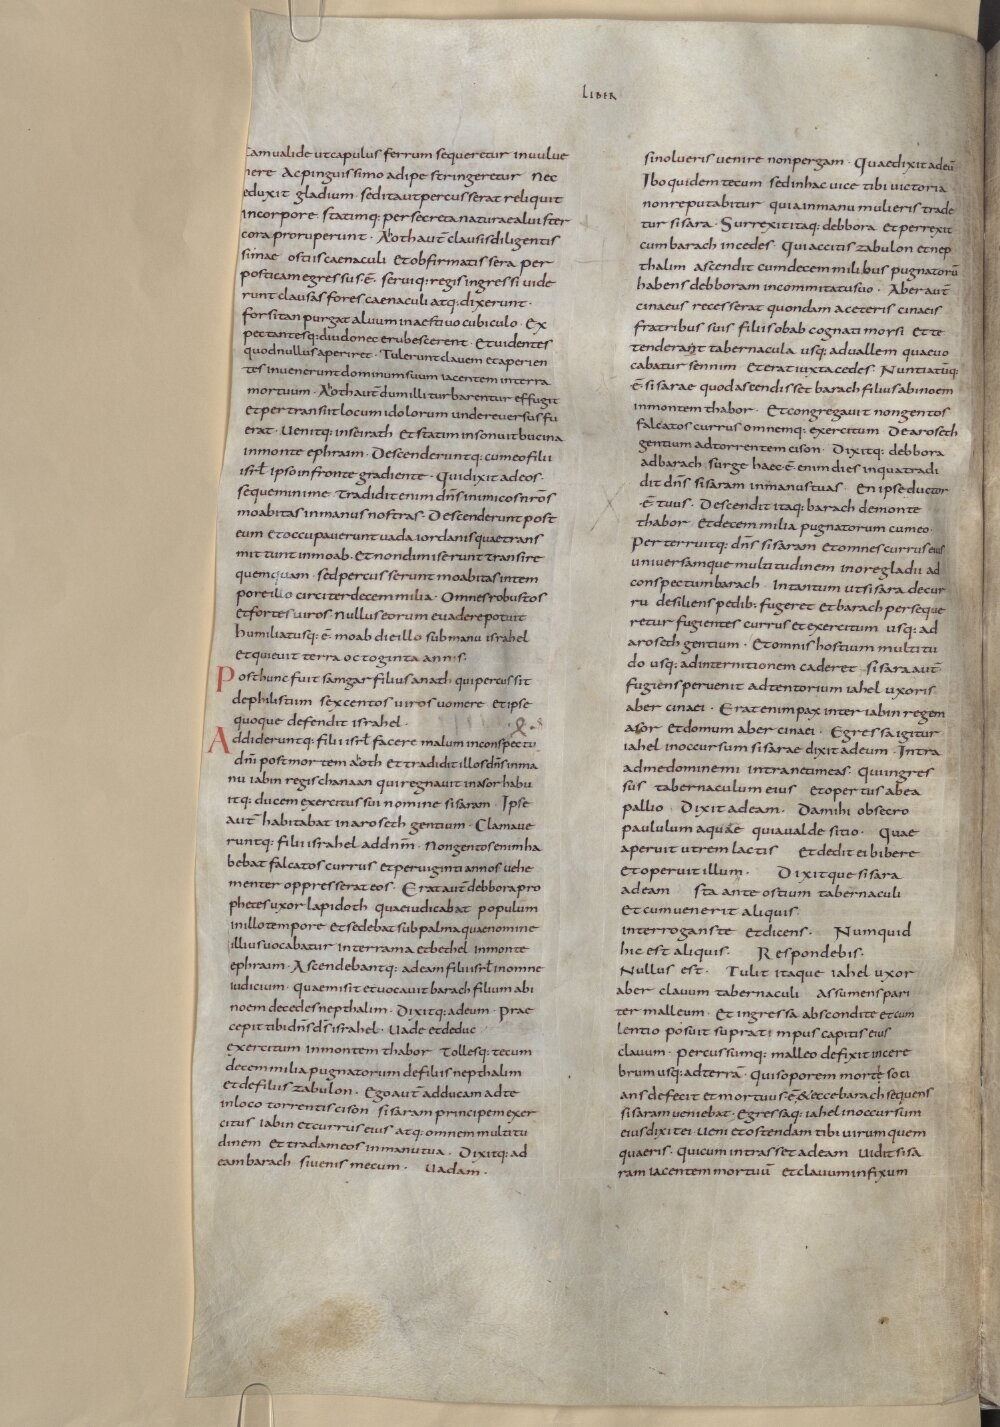 LIBER
tam ualide ut capulus ferrum sequeretur in uulue
nere Ac pinguissimo adipe stringeretur Nec
eduxit gladium. sed ita ut percusserat reliquit
in corpore. statimq: per secreta naturae alui ster
cora proruperunt. Aoth aut̄ clausis diligentis
simae ostiis caenaculi Et obfirmatis sera per
posticam egressus.ē. seruiq: regis ingressi uide
runt clausas fores caenaculi atq: dixerunt.
forsitan purgat aluum in aestiuo cubiculo. Ex
pectantesq: diu donec erubescerent. Et uidentes
quod nullus aperiret. Tulerunt clauem et aperien
tes inuenerunt dominum suum iacentem in terra
mortuum. Aoth aut̄ dum illi turbarentur effugit
Et pertransiit locum idolorum unde reuersus fu
erat. Uenitq: in seirath Et statim insonuit bucina
in monte ephraim. Descenderuntq: cum eo filii
isrl̄ ipso in fronte gradiente. Qui dixit ad eos.
sequemini me Tradidit enim dn̄s inimicos nr̄os
moabitas in manus nostras. Descenderunt post
eum Et occupauerunt uada iordanis quae trans
mittunt in moab. Et non dimiserunt transire
quemquam. sed percusserunt moabitas in tem
pore illo circiter decem milia. Omnes robustos
Et fortes uiros. Nullus eorum euadere potuit
humiliatusq: ē. moab die illo sub manu israhel
Et quieuit terra octoginta annis.
Post hunc fuit samgar filius anath qui percussit
de philistiim sexcentos uiros uomere Et ipse
quoque defendit israhel.
Addideruntq: filii isrl̄ facere malum in conspectu
dn̄i post mortem aoth Et tradidit illos dn̄s in ma
nu iabin regis chanaan qui regnauit in asor habu
itq: ducem exercitus sui nomine sisaram. Ipse
aut̄ habitabat in aroseth gentium. Clamaue
runtq: filii israhel ad dn̄m. Nongentos enim ha
bebat falcatos currus Et per uiginti annos uehe
menter oppresserat eos. Erat aut̄ debbora pro
phetes uxor lapidoth quae iudicabat populum
in illo tempore Et sedebat sub palma quae nomine
illius uocabatur inter rama et bethel in monte
ephraim. Ascendebantq: ad eam filii isrl̄ in omne
iudicium. Quae misit et uocauit barach filium abi
noem de cedes nepthalim. Dixitq: ad eum. Prae
cepit tibi dn̄s ds̄ israhel. Uade et deduc
exercitum in montem thabor Tollesq: tecum
decem milia pugnatorum de filiis nepthalim
Et de filiis zabulon. Ego aut̄ adducam ad te
in loco torrentis cison. sisaram principem exer
citus iabin et currus eius atq: omnem multitu
dinem Et tradam eos in manu tua. Dixitq: ad
eam barach si uenis mecum. Uadam.
si nolueris uenire non pergam. Quae dixit ad eū
Ibo quidem tecum sed in hac uice tibi uictoria
non reputabitur quia in manu mulieris trade
tur sisara. Surrexit itaq: debbora Et perrexit
cum barach in cedes. Qui accitis zabulon et nep
thalim ascendit cum decem milibus pugnatorū
habens debboram in commitatu suo. Aber aut̄
cinaeus recesserat quondam a ceteris cinaeis
fratribus suis filiis obab cognati moysi Et te
tenderant tabernacula usq: ad uallem quae uo
cabatur sennim. Et erat iuxta cedes. Nuntiatūq:
ē sisarae quod ascendisset barach filius abinoem
in montem thabor. Et congregauit nongentos
falcatos currus omnemq: exercitum De aroseth
gentium ad torrentem cison. Dixitq: debbora
ad barach. surge haec.ē. enim dies in qua tradi
dit dn̄s sisaram in manus tuas. En ipse ductor
.ē. tuus. Descendit itaq: barach de monte
thabor Et decem milia pugnatorum cum eo.
Perterruitq: dn̄s sisaram Et omnes currus eius
uniuersamque multitudinem in ore gladii ad
conspectum barach. In tantum ut sisara de cur
ru desiliens pedib: fugeret Et barach perseque
retur fugientes currus et exercitum usq: ad
aroseth gentium. Et omnis hostium multitu
do usq: ad internitionem caderet. sisara aut̄
fugiens peruenit ad tentorium iahel uxoris
aber cinaei. Erat enim pax inter iabin regem
asor Et domum aber cinaei. Egressa igitur
iahel in occursum sisarae dixit ad eum. Intra
ad me domine mi intra ne timeas. Qui ingres
sus tabernaculum eius Et opertus ab ea
pallio Dixit ad eam. Da mihi obsecro
paululum aquae quia ualde sitio. Quae
aperuit utrem lactis Et dedit ei bibere
Et operuit illum. Dixitque sisara
ad eam sta ante ostium tabernaculi
Et cum uenerit aliquis.
interrogans te Et dicens. Numquid
hic est aliquis. Respondebis.
Nullus est. Tulit itaque iahel uxor
aber clauum tabernaculi Assumens pari
ter malleum. Et ingressa abscondite et cum
lentio posuit supra timpus capitis eius
clauum. percussumq: malleo defixit in cere
brum usq: ad terrā. Qui soporem morte soci
ans defecit et mortuus.ē.& ecce barach sequens
sisaram ueniebat. Egressaq: iahel in occursum
eius dixit ei. Ueni et ostendam tibi uirum quem
quaeris. Qui cum intrasset ad eam Uidit sisa
ram iacentem mortuū Et clauum infixum